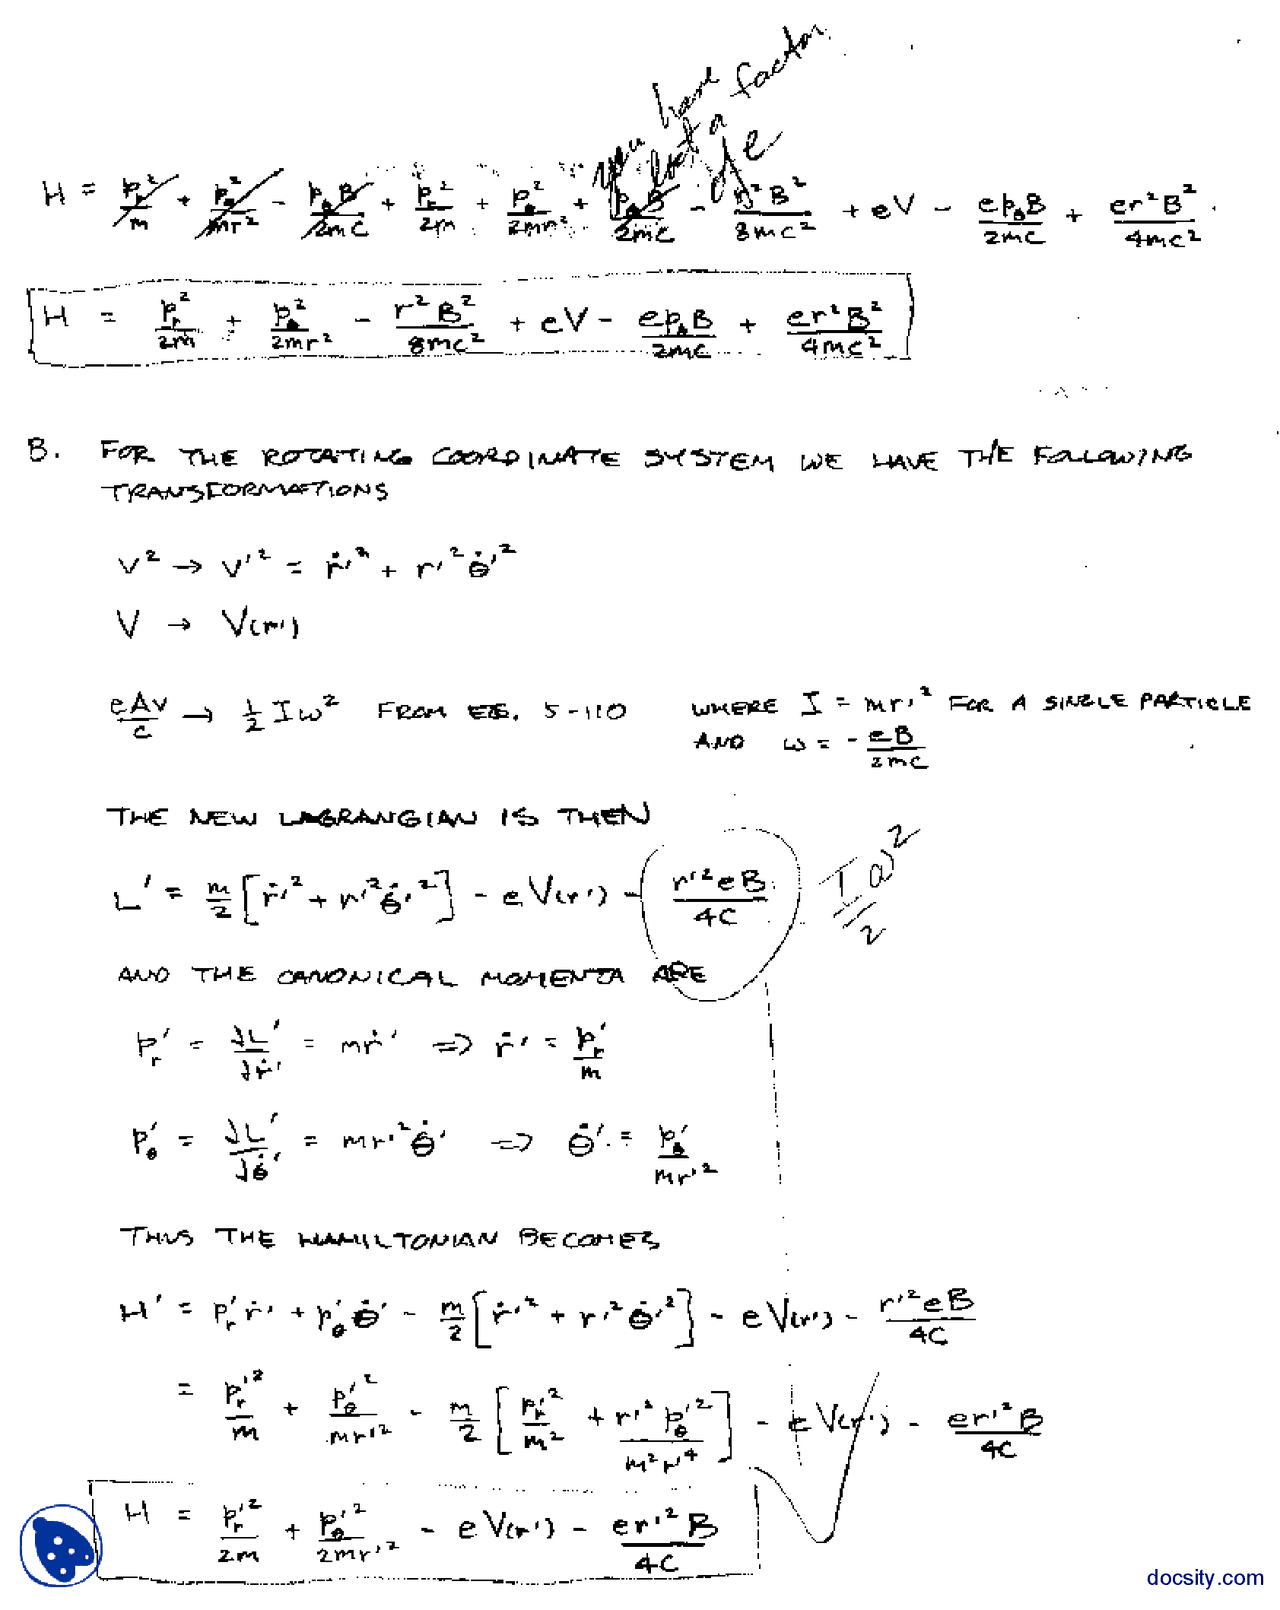 you have
lost a factor
of e
H = p_r²/m + p_θ²/mr² - p_θB/2mc + p_r²/2m + p_θ²/2mr² + p_θB/2mc - r²B²/8mc² + eV - ep_θB/2mc + er²B²/4mc²
H = p_r²/2m + p_θ²/2mr² - r²B²/8mc² + eV - ep_θB/2mc + er²B²/4mc²
B. FOR THE ROTATING COORDINATE SYSTEM WE HAVE THE FOLLOWING
TRANSFORMATIONS
v² → v'² = ṙ'² + r'²θ̇'²
V → V(r')
eAv/c → ½Iω² FROM EQ. 5-110 WHERE I = mr'² FOR A SINGLE PARTICLE
AND ω = -eB/2mc
THE NEW LAGRANGIAN IS THEN
L' = m/2 [ṙ'² + r'²θ̇'²] - eV(r') - r'²eB/4C Iω²/2
AND THE CANONICAL MOMENTA ARE
p_r' = ∂L'/∂ṙ' = mṙ' ⇒ ṙ' = p_r'/m
p_θ' = ∂L'/∂θ̇' = mr'²θ̇' ⇒ θ̇' = p_θ'/mr'²
THUS THE HAMILTONIAN BECOMES
H' = p_r'ṙ' + p_θ'θ̇' - m/2 [ṙ'² + r'²θ̇'²] - eV(r') - r'²eB/4C
= p_r'²/m + p_θ'²/mr'² - m/2 [p_r'²/m² + r'²p_θ'²/m²r'⁴] - eV(r') - er'²B/4C
H = p_r'²/2m + p_θ'²/2mr'² - eV(r') - er'²B/4C
docsity.com